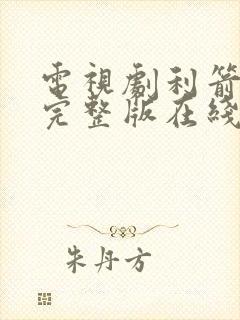 電視劇利箭
完整版在綫
朱丹方